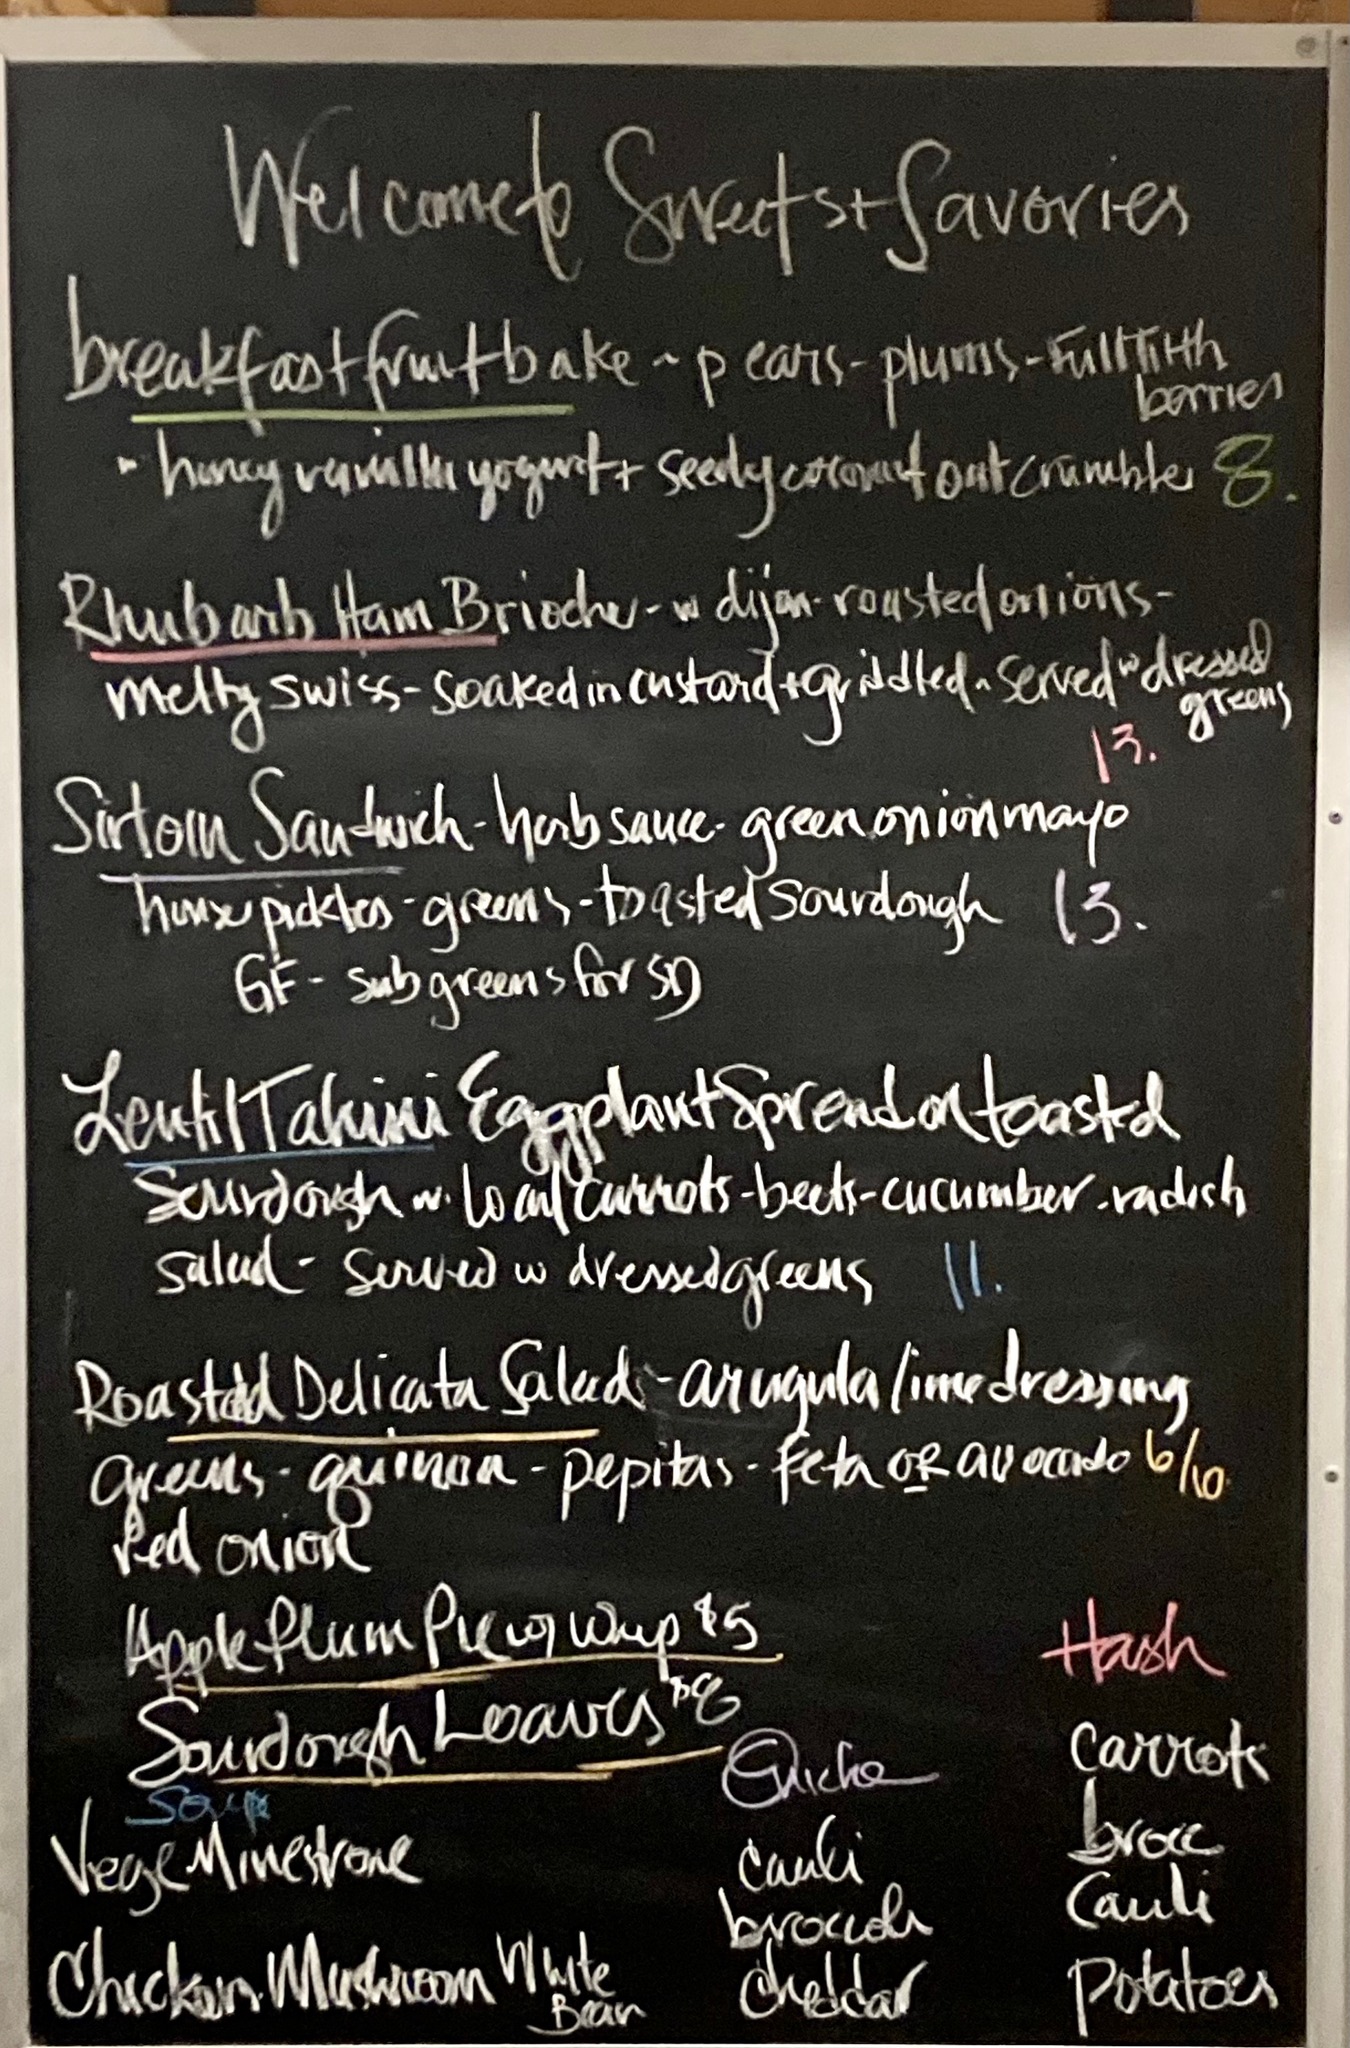 Welcome to Sweets + Savories
breakfast fruit bake ~ pears - plums - Full Tilth
berries
- honey vanilla yogurt + seedy coconut oat crumble 8.
Rhubarb Ham Brioche - w dijon - roasted onions -
melty swiss - soaked in custard + griddled - served w dressed
greens
13.
Sirloin Sandwich - herb sauce - green onion mayo
house pickles - greens - toasted sourdough 13.
GF - sub greens for SD
Lentil Tahini Eggplant Spread on toasted
Sourdough w. local carrots - beets - cucumber - radish
salad - served w dressed greens 11.
Roasted Delicata Salad - arugula lime dressing
greens - quinoa - pepitas - feta OR avocado 6/10
red onion
Apple Plum Pie w whip $5
Sourdough Loaves $8
Soup
Vege Minestrone
Chicken Mushroom White
Bean
Quiche
cauli
broccoli
cheddar
Hash
carrots
brocc
cauli
potatoes